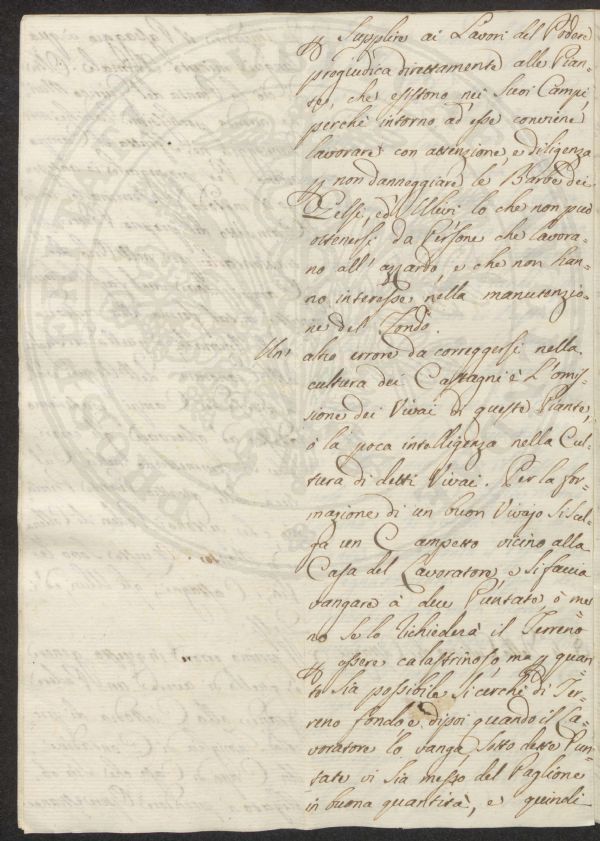 p Supplire ai Lavori del Podere
progiudica direttamente alle Pian=
te, che esistono nei suoi Campi,
perche intorno ad esse conviene
lavorare con attenzione, e diligenza
p non danneggiare le Barbe dei
Gelsi, ed Ulivi lo che non può
ottenersi da Persone che lavora=
no all' azzardo, e che non han=
no interesse nella manutenzio=
ne del Fondo.
Un' altro errore da correggersi nella
cultura dei Castagni è L'omis=
sione dei Vivai di queste Piante,
ò la poca intelligenza nella Cul=
tura di detti Vivai. Per la for=
mazione di un buon Vivajo si scel=
ga un Campetto vicino alla
Casa del Lavoratore, e si faccia
vangare à dece Puntate, ò me=
no se lo richiederà il Terreno
p essere calastrinoso, ma p quan=
to sia possibile si cerchi di Ter=
reno fondo, e dipoi quando il La=
voratore lo vanga sotto dette Pun=
tate vi sia messo del Paglione
in buona quantità, e quindi